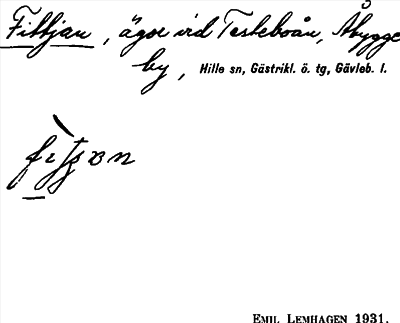 Fitkjan, ägor vid Testeboån, Åbygge
by, Hille sn, Gästrikl. ö. tg, Gävleb. l.
EMIL LEMHAGEN 1931.